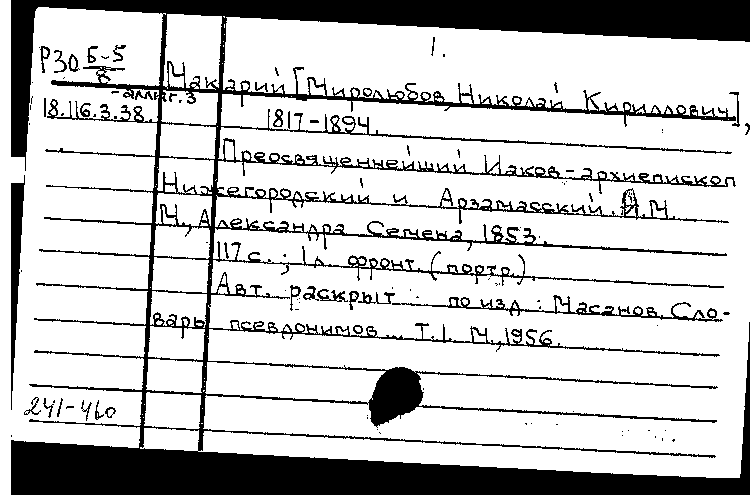 1.
Р30 Б-5/8
Макарий [Миролюбов, Николай Кириллович],
-аллиг.3
18.116.3.38.
1817-1894.
Преосвященнейший Иаков - архиепископ
Нижегородский и Арзамасский. М.
М., Александра Семена, 1853.
117 с.; 1 л. фронт. (портр.).
Авт. раскрыт по изд.: Масанов. Сло-
варь псевдонимов... Т.1. М., 1956.
241-460